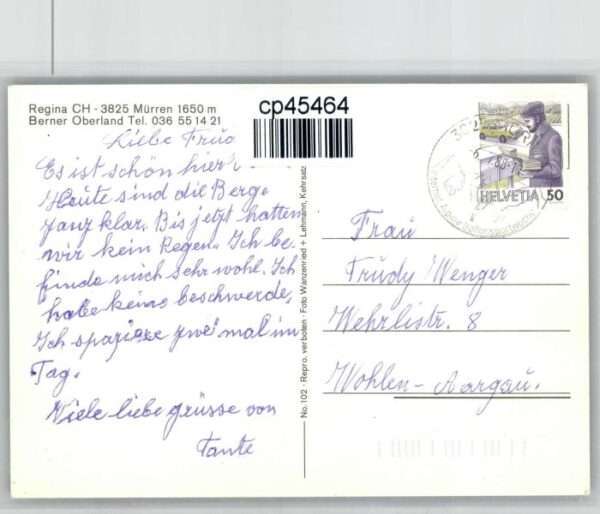 Regina CH - 3825 Mürren 1650 m
Berner Oberland Tel. 036 55 14 21
cp45464
Liebe
Es ist schön hier.
Heute sind die Berge
ganz klar. Bis jetzt hatten
wir kein Regen. Ich be-
finde mich sehr wohl. Ich
habe keine beschwerde,
Ich spaziere zwei mal im
Tag.
Viele liebe grüsse von
Tante
No. 102 · Repro. verboten · Foto Wanzenried + Lehmann, Kehrsatz
HELVETIA 50
Frau
Trudy Wenger
Wehrlistr. 8
Wohlen-Aargau.